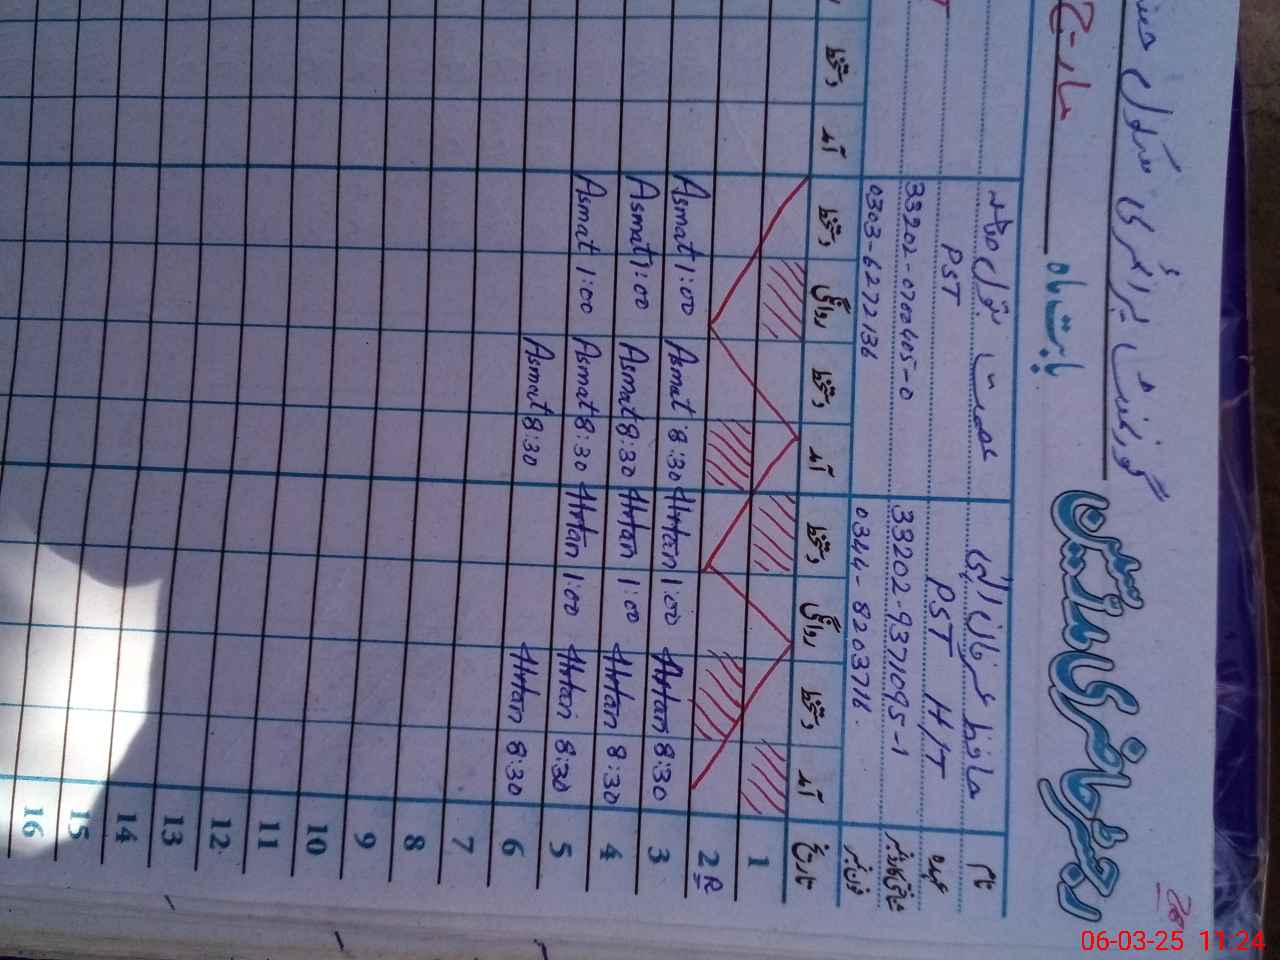 گورنمنٹ پرائمری سکول
رجسٹر حاضری مدرسین
بابت ماہ
مارچ
نام
حافظ عرفان الہی
عصمت بتول صاحبہ
عہدہ
PST H/T
PST
شناختی کارڈ نمبر
33202-9371095-1
33202-0700405-0
فون نمبر
0344-8203716
0303-6272136
تاریخ آمد دستخط روانگی دستخط آمد دستخط روانگی دستخط آمد دستخط
1
2
3 8:30 1:00 8:30 Asmat 1:00 Asmat
4 8:30 1:00 8:30 Asmat 1:00 Asmat
5 8:30 1:00 8:30 Asmat 1:00 Asmat
6 8:30 8:30 Asmat
7
8
9
10
11
12
13
14
15
16
06-03-25 11:24